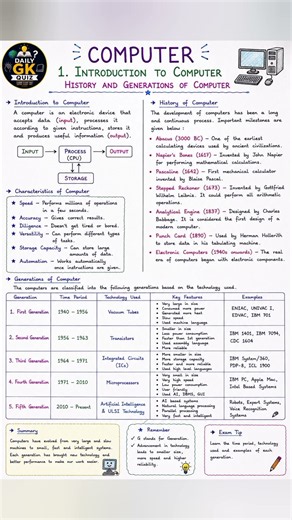 DAILY
GK
QUIZ
COMPUTER
1. INTRODUCTION TO COMPUTER
HISTORY AND GENERATIONS OF COMPUTER
Introduction to Computer
A computer is an electronic device that
accepts data (input), processes it
according to given instructions, stores it
and produces useful information (output).
INPUT
PROCESS
(CPU)
OUTPUT
STORAGE
Characteristics of Computer
Speed – Performs millions of operations
in a few seconds.
Accuracy – Gives correct results.
Diligence – Doesn't get tired or bored.
Versatility – Can perform different
types of tasks.
Storage Capacity – Can store large
amounts of data.
Automation – Works automatically
once instructions are given.
History of Computer
The development of computers has been a long
and continuous process. Important milestones are
given below :
Abacus (3000 BC) – One of the earliest
calculating devices used by ancient civilizations.
Napier's Bones (1617) – Invented by John Napier
for performing mathematical calculations.
Pascaline (1642) – First mechanical calculator
invented by Blaise Pascal.
Stepped Reckoner (1673) – Invented by Gottfried
Wilhelm Leibniz. It could perform all arithmetic
operations.
Analytical Engine (1837) – Designed by Charles
Babbage. It is considered the first design of a
modern computer.
Punch Card (1890) – Used by Herman Hollerith
to store data in his tabulating machine.
Electronic Computers (1940s onwards) – The real
era of computers begun with electronic components.
Generations of Computer
The computers are classified into the following generations based on the technology used.
Generation Time Period Technology Used Key Features Examples
1. First Generation 1940 – 1956 Vacuum Tubes
Very large in size
Consumed more power
Generated more heat
Slow speed
Used machine language
ENIAC, UNIVAC I,
EDVAC, IBM 701
2. Second Generation 1956 – 1963 Transistors
Smaller in size
Less power consumption
Faster than 1st generation
Used assembly language
More reliable
IBM 1401, IBM 7094,
CDC 1604
3. Third Generation 1964 – 1971 Integrated Circuits
(ICs)
More smaller in size
More storage capacity
Faster and more reliable
Used high level languages
IBM System/360,
PDP-8, ICL 1900
4. Fourth Generation 1971 – 2010 Microprocessors
Very small in size
Very high speed
Low power consumption
User friendly
Used AI, DBMS, GUI
IBM PC, Apple Mac,
Intel Based Systems
5. Fifth Generation 2010 – Present Artificial Intelligence
& ULSI Technology
AI based systems
Natural language processing
Parallel processing
Very fast and intelligent
Robots, Expert Systems,
Voice Recognition
Systems
Summary
Computers have evolved from very large and slow
machines to small, fast and intelligent systems.
Each generation has brought new technology and
better performance to make our work easier.
Remember
G stands for Generation.
Advancement in technology
leads to smaller size,
more speed and higher
reliability.
Exam Tip
Learn the time period, technology
used and examples of each
generation.